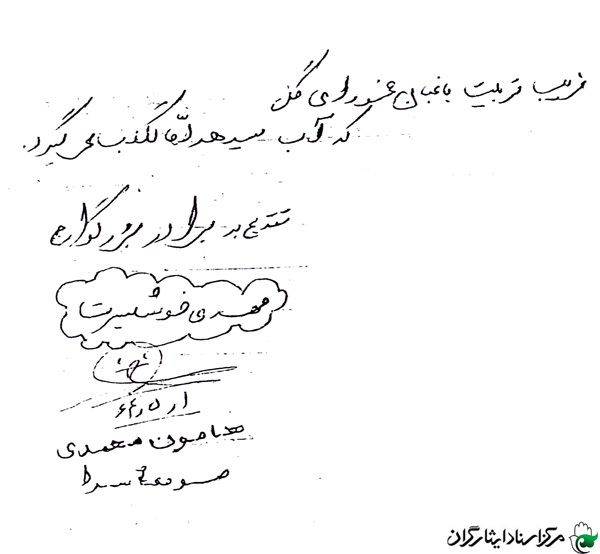 فریب تربیت باغبان مخور ای گل
که آب میدهد امّا گلاب می گیرد.
تقدیم به برادر بزرگوارم
مهدی خوشسیرت
۶۶/۵/۱
هامون محمدی
صومعه سرا
مرکز اسناد ایثارگران